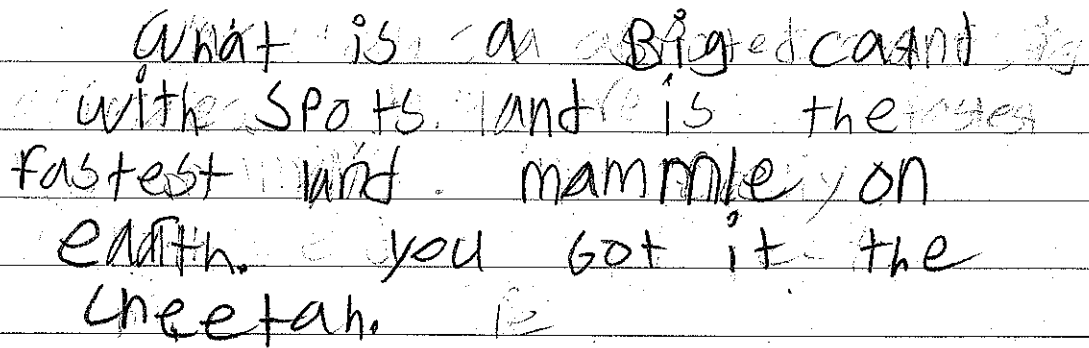 What is a Big cat
with spots and is the
fastest land mammle on
earth. you Got it the
cheetah.